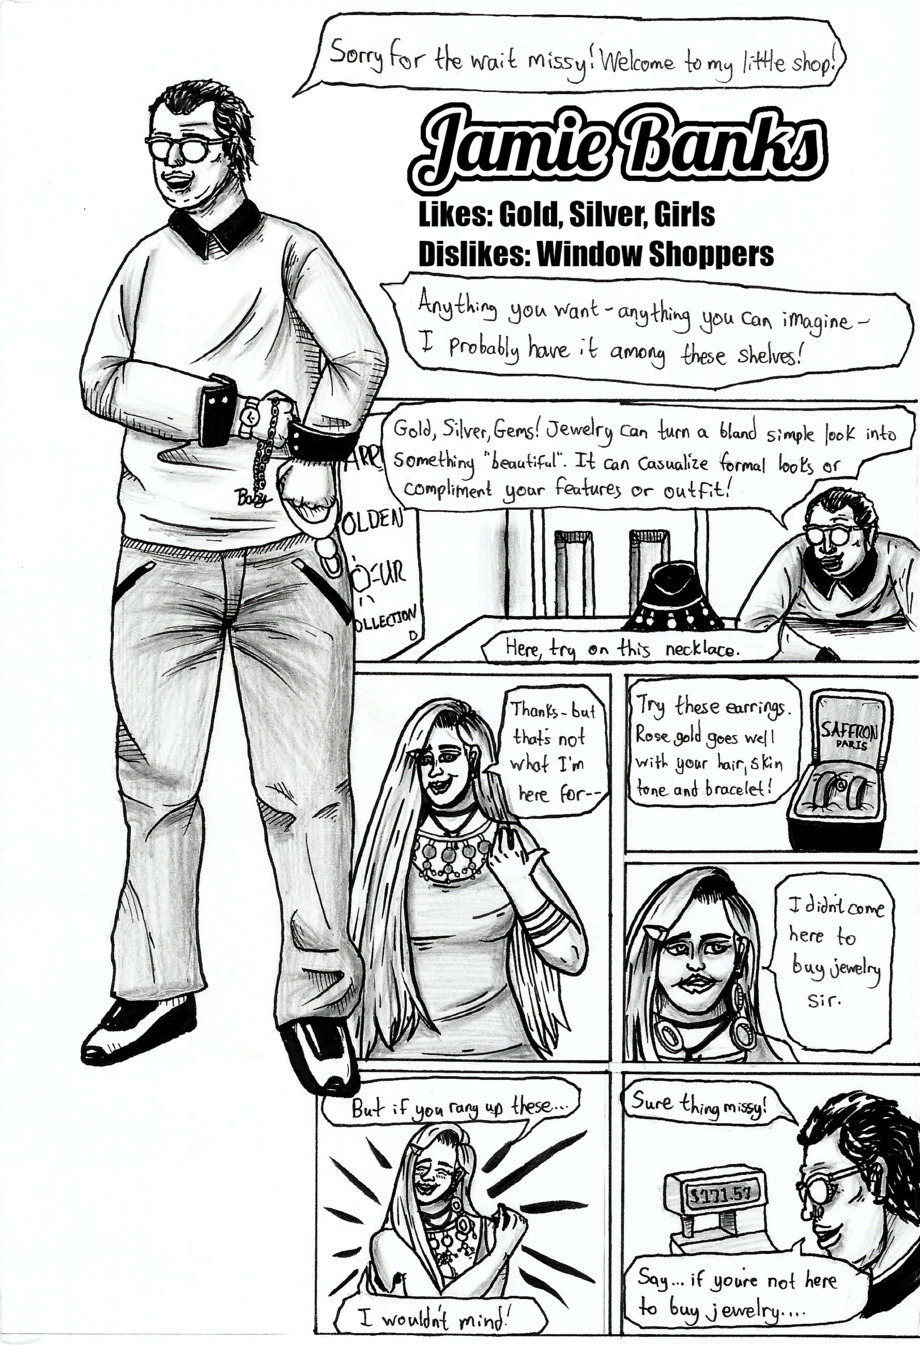 Sorry for the wait missy! Welcome to my little shop!
Jamie Banks
Likes: Gold, Silver, Girls
Dislikes: Window Shoppers
Anything you want - anything you can imagine -
I probably have it among these shelves!
Baby
Gold, Silver, Gems! Jewelry can turn a bland simple look into
something "beautiful". It can casualize formal looks or
compliment your features or outfit!
OLDEN
OUR
OLLECTION
Here, try on this necklace.
Thanks - but
that's not
what I'm
here for--
Try these earrings.
Rose gold goes well
with your hair, skin
tone and bracelet!
SAFFRON
PARIS
I didn't come
here to
buy jewelry
sir.
But if you rang up these...
I wouldn't mind!
Sure thing missy!
$771.57
Say... if you're not here
to buy jewelry....